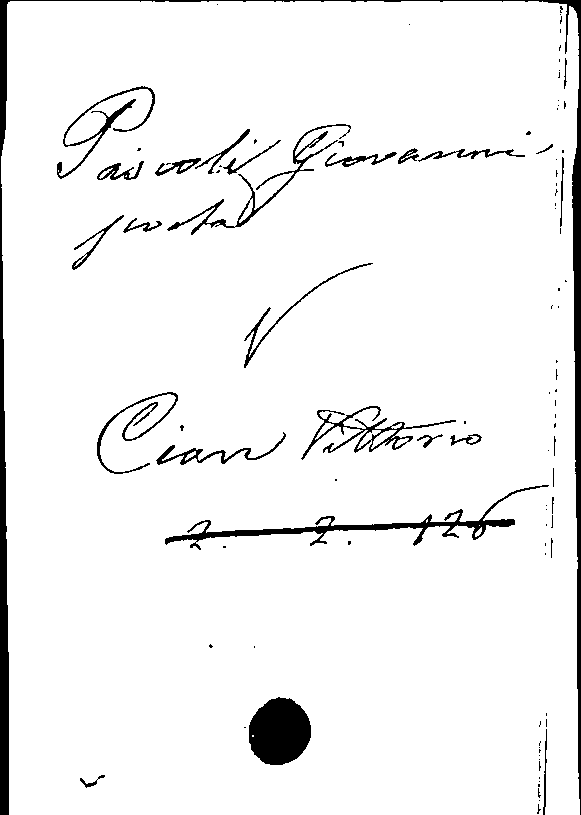 Pascoli Giovanni
poeta
V
Cian Vittorio
2. 2. 126